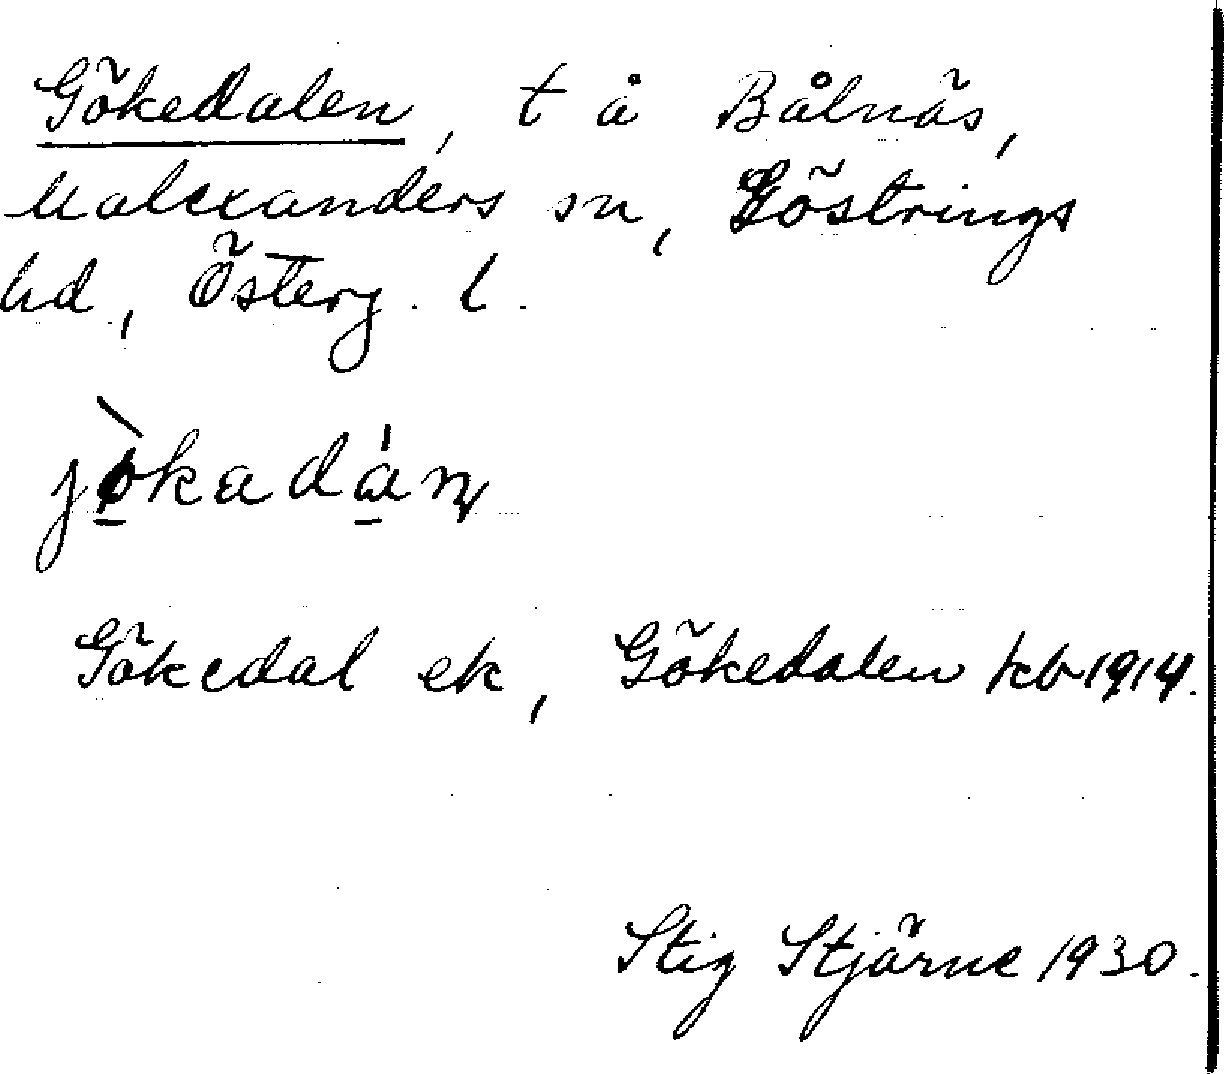 Gökedalen, t å Bålnäs,
Malexanders sn, Göstrings
hd, Österg. l.
jòkadáṇ
Gökedal ek, Gökedalen kb 1914.
Stig Stjärne 1930.